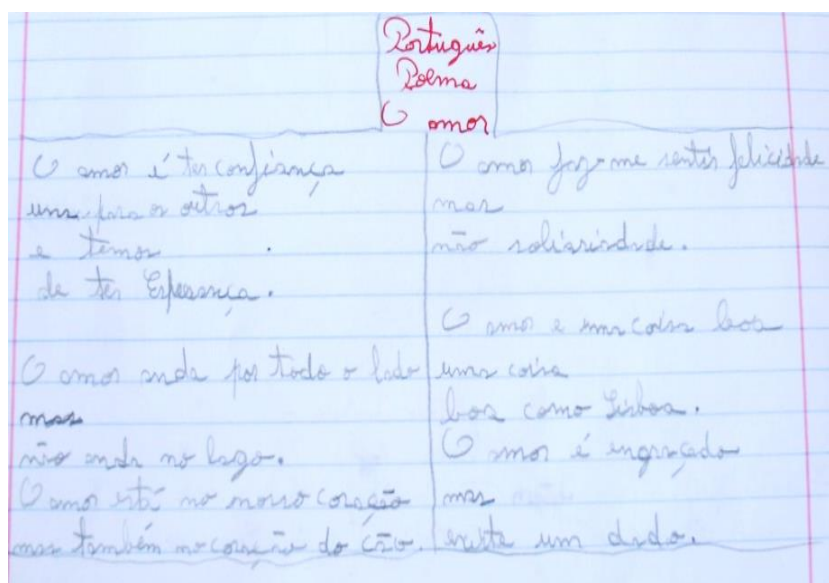 Português
Poema
O amor
O amor é ter confiança
uns para os outros
e temos
de ter Esperança.
O amor anda por todo o lado
mas
não anda no lago.
O amor está no nosso coração
mas também no coração do cão.
O amor faz-me sentir felicidade
mas
não
O amor e uma coisa boa
uma coisa
boa como Lisboa.
O amor é engraçado
mas
um dado.